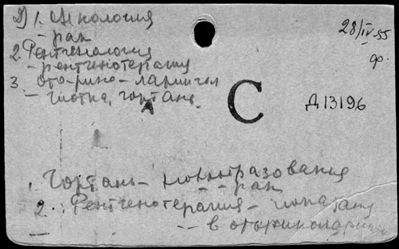 1. Онкология
- рак
28/IV-55
2. Рентгенология
- рентгенотерапия
ф.
3. ото-рино-ларингол
- глотка, гортань.
С
Д13196
1. Гортань - новообразования
- рак
2. Рентгенотерапия -
- в оториноларинг